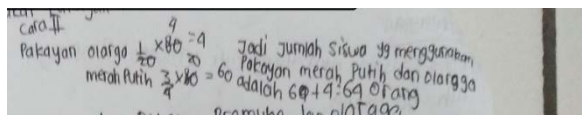 cara II
Pakayan olarga 1/20 × 80 = 4
merah Putih 3/4 × 80 = 60
Jadi Jumlah Siswa yg menggunakan
Pakayan merah Putih dan olargga
adalah 60+4=64 orang